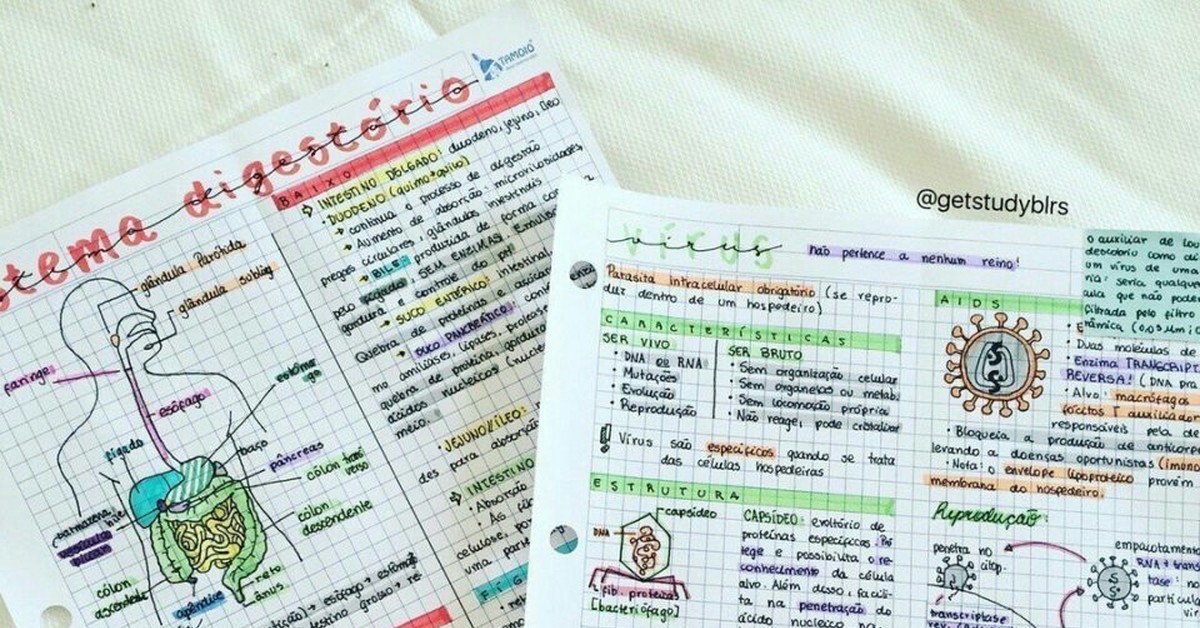 TAMOIO
stema digestório
BAIXO
⇨ INTESTINO DELGADO: duodeno, jejuno, íleo
• DUODENO (quimo→quilo)
→ continua o processo de digestão
→ Aumento de absorção: microvilosidades,
pregas circulares, glândulas intestinais.
→ BILE: produzida de forma con
pelo fígado, SEM ENZIMAS. Emulsi
gordura e controle do pH
→ SUCO ENTÉRICO: intestinal
Quebra de proteínas e
→ SUCO PANCREÁTICO: cont
mo amiliases, lipases, protease
quebra de proteína, gordura
ácidos nucleicos (nucle
meio.
• JEJUNO/ÍLEO:
des para absorção
⇨ INTESTINO
• Absorção
celulose, po
uma part
FÍG
glândula Parótida
glândula subling
faringe
esôfago
estômago
fígado
baço
pâncreas
cólon trans
verso
cólon
descendente
armazena
bile
vesícula
biliar
cólon
ascendente
apêndice
reto
ânus
esôfago → estômago
testino grosso → re-
@getstudyblrs
vírus
VÍRUS
não pertence a nenhum reino!
Parasita intracelular obrigatório (se repro-
duz dentro de um hospedeiro)
CARACTERÍSTICAS
SER VIVO
• DNA ou RNA
• Mutações
• Evolução
• Reprodução
SER BRUTO
• Sem organização celular
• Sem organelas ou metab.
• Sem locomoção própria
• Não reage, pode cristalizar
! Vírus são específicos quando se trata
das células hospedeiras
ESTRUTURA
capsídeo
DNA
fib. proteínas
[bacteriófago]
CAPSÍDEO: envoltório de
proteínas específicas. Pro
tege e possibilita o re-
conhecimento da célula
alvo. Além disso, facili-
ta na penetração do
ácido nucleico na
o auxiliar de lab
descobriu como di
um vírus de uma
ria: seria qualque
ula que não pode
filtrada pelo filtro
râmica (0,05 µm
AIDS
• Duas moléculas de
• Enzima TRANSCRIPT
REVERSA! (DNA pra
• Alvo: macrófagos
fócitos T auxiliador
responsáveis pela de
• Bloqueia a produção de anticorp
levando a doenças oportunistas (imuno
• Nota: o envelope lipoproteico provém
membrana do hospedeiro.
Reprodução:
penetra no
citop.
transcriptase
rev.
empacotament
RNA + trans
tase: n
partícula
vir